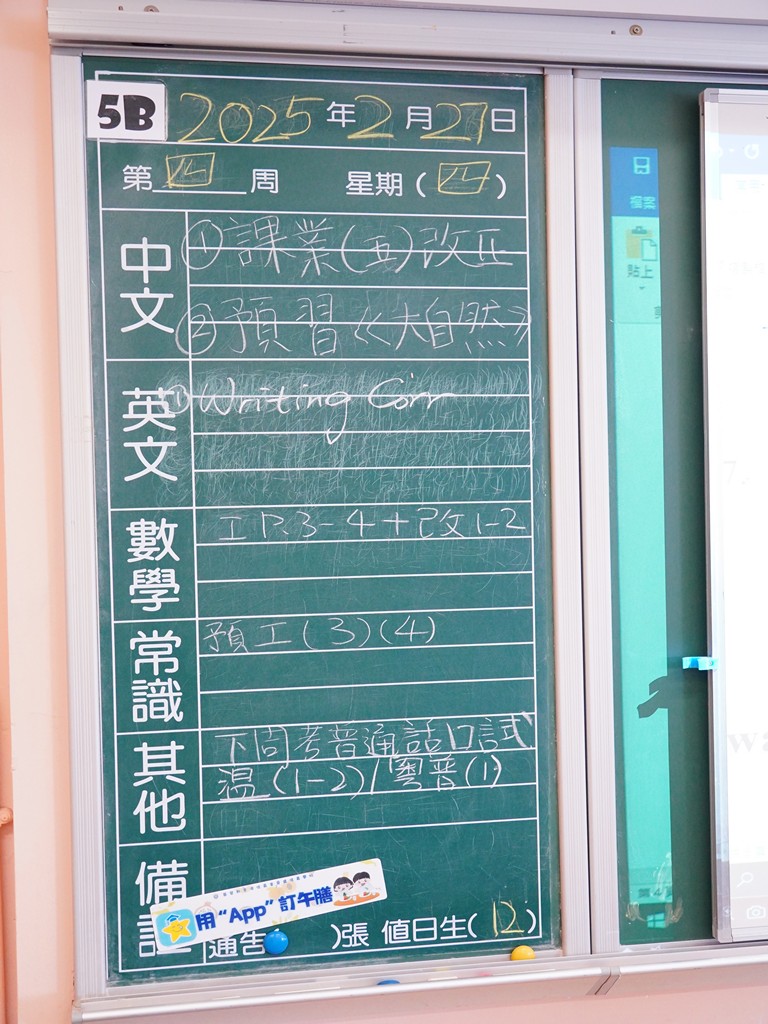 5B
2025年2月27日
第 14 周 星期(四)
中文
①課業(五)改正
②預習《大自然》
英文
① Writing Corr
數學
工P.3-4+改1-2
常識
預工(3)(4)
其他
下周考普通話口試
溫(1-2)/粵普(1)
備
用“App”訂午膳
通告 )張 值日生(12)
檔案
貼上